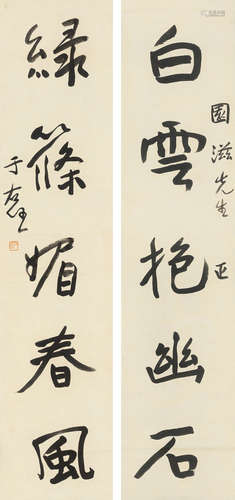 白雲抱幽石
國滋先生正
綠篠媚春風
于右任